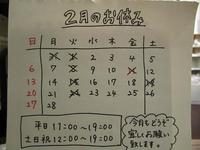 2月のお休み
日 月 火 水 木 金 土
1 2 3 4 5
6 7 8 9 10 11 12
13 14 15 16 17 18 19
20 21 22 23 24 25 26
27 28
平日 11:00〜19:00
土日祝 12:00〜19:00
今月もどうぞ
宜しくお願い
致します。